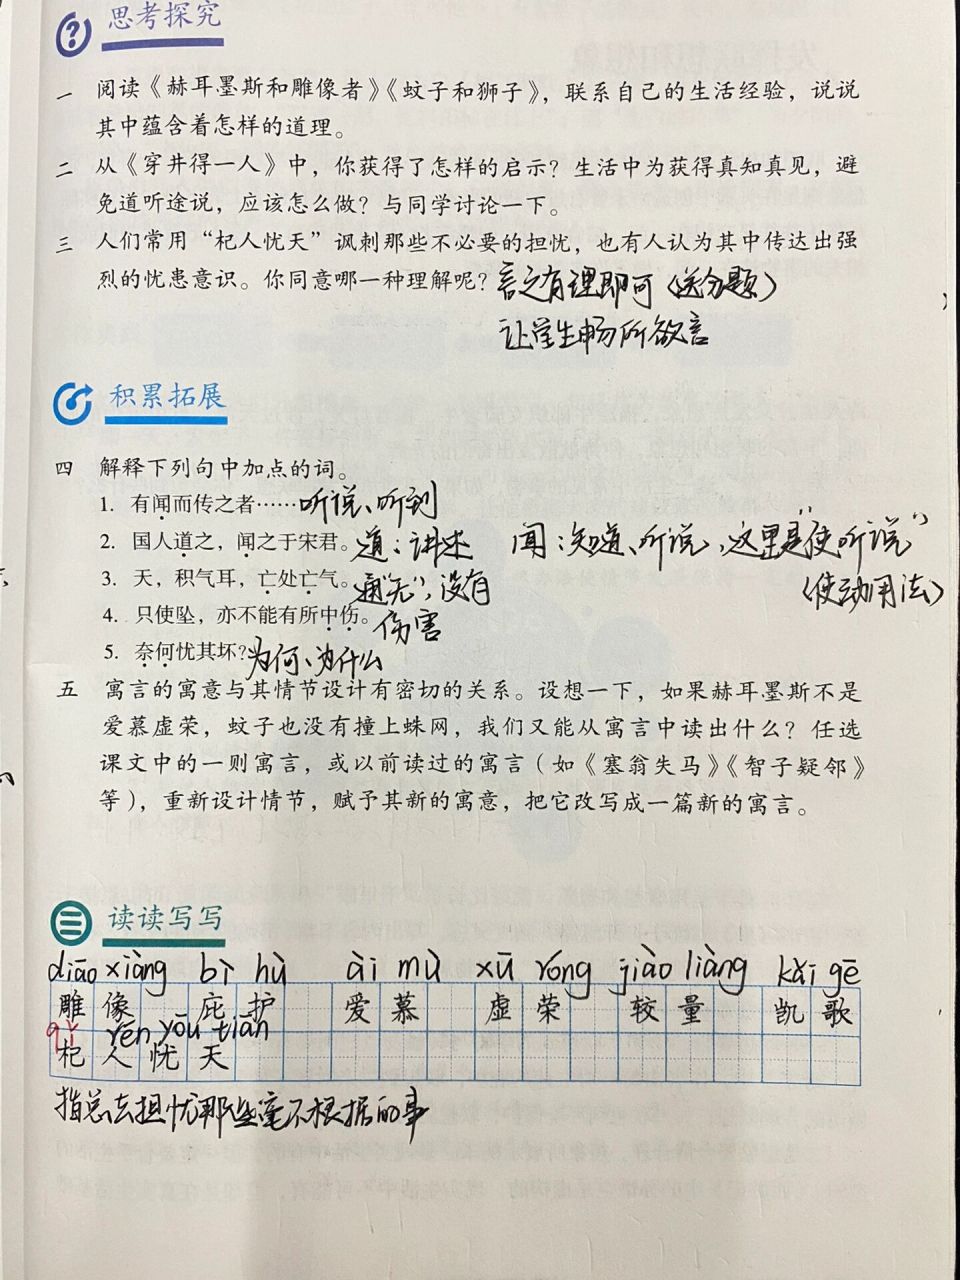 思考探究
一 阅读《赫耳墨斯和雕像者》《蚊子和狮子》，联系自己的生活经验，说说
其中蕴含着怎样的道理。
二 从《穿井得一人》中，你获得了怎样的启示？生活中为获得真知真见，避
免道听途说，应该怎么做？与同学讨论一下。
三 人们常用“杞人忧天”讽刺那些不必要的担忧，也有人认为其中传达出强
烈的忧患意识。你同意哪一种理解呢？言之有理即可（送分题）
让学生畅所欲言
积累拓展
四 解释下列句中加点的词。
1. 有闻而传之者……听说、听到
2. 国人道之，闻之于宋君。道：讲述 闻：知道、听说，这里是“使听说”
（使动用法）
3. 天，积气耳，亡处亡气。通“无”，没有
4. 只使坠，亦不能有所中伤。伤害
5. 奈何忧其坏？为何、为什么
五 寓言的寓意与其情节设计有密切的关系。设想一下，如果赫耳墨斯不是
爱慕虚荣，蚊子也没有撞上蛛网，我们又能从寓言中读出什么？任选
课文中的一则寓言，或以前读过的寓言（如《塞翁失马》《智子疑邻》
等），重新设计情节，赋予其新的寓意，把它改写成一篇新的寓言。
读读写写
diāo xiàng bì hù ài mù xū róng jiào liàng kǎi gē
雕像 庇护 爱慕 虚荣 较量 凯歌
qǐ rén yōu tiān
杞人忧天
指总去担忧那些毫不根据的事